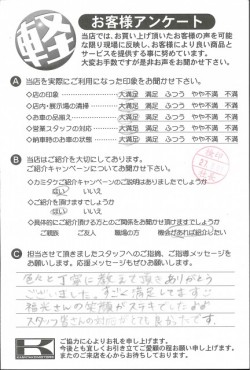 軽
お客様アンケート
当店では、お買い上げ頂いたお客様の声を可能
な限り現場に反映し、お客様により良い商品と
サービスを提供する事に努めています。
大変お手数ですが是非お声をお聞かせ下さい。
A 当店を実際にご利用になった印象をお聞かせ下さい。
◇店の印象 大満足 満足 ふつう やや不満 不満
◇店内・展示場の清掃 大満足 満足 ふつう やや不満 不満
◇お車の品揃え 大満足 満足 ふつう やや不満 不満
◇営業スタッフの対応 大満足 満足 ふつう やや不満 不満
◇納車時のお車の状態 大満足 満足 ふつう やや不満 不満
B 当店はご紹介を大切にしております。
ご紹介キャンペーンについてお聞かせ下さい。
◇カミタウご紹介キャンペーンのご説明はありましたでしょうか
はい いいえ
◇ご紹介を頂けますでしょうか
はい いいえ
◇具体的にご紹介頂ける方とのご関係をお聞かせ頂けますでしょうか
ご親戚 ご友人 職場の方 機会があれば紹介したい
C 担当させて頂きましたスタッフへのご指摘、ご指導メッセージを
お願いします。応援メッセージもぜひお願いします。
色々と丁寧に教えて頂きありがとう
ございました。すごく満足してます
さんの笑顔がステキでした
スタッフ皆さんの対応がとても良かったです。
K
ご協力に心よりお礼を申し上げます。
今後とも宜しくお引き立てご愛顧の程お願い申し上げます。
またのご来店を心からお待ちしております。